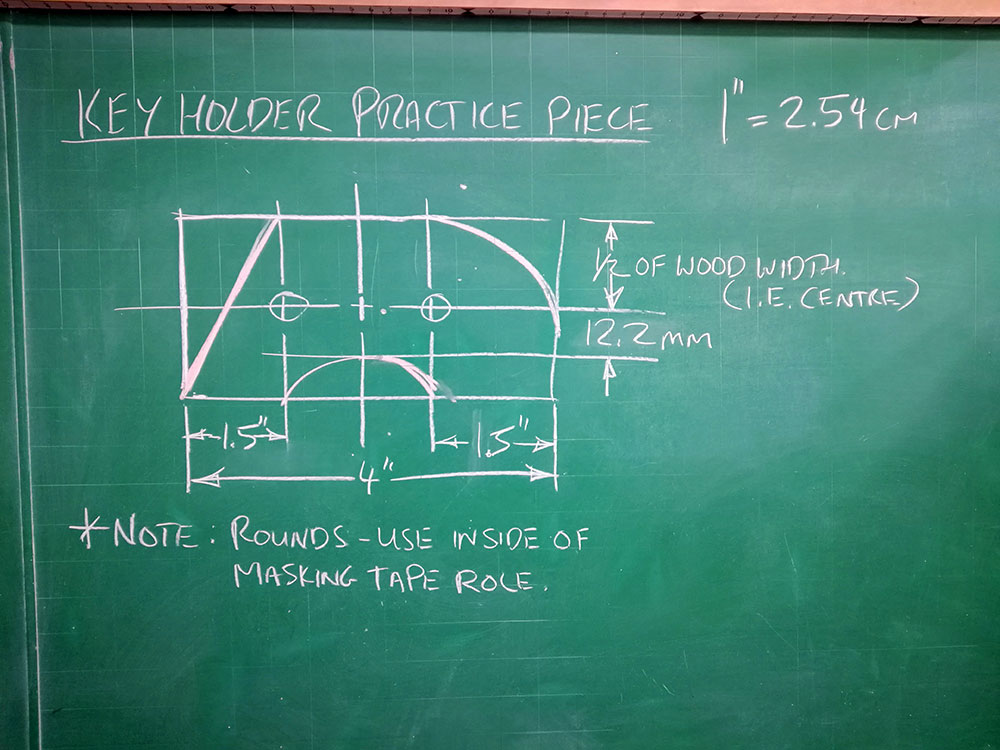 KEY HOLDER PRACTICE PIECE
1" = 2.54 CM
1/2 OF WOOD WIDTH.
(I.E. CENTRE)
12.2 MM
1.5"
1.5"
4"
*NOTE: ROUNDS - USE INSIDE OF
MASKING TAPE ROLE.